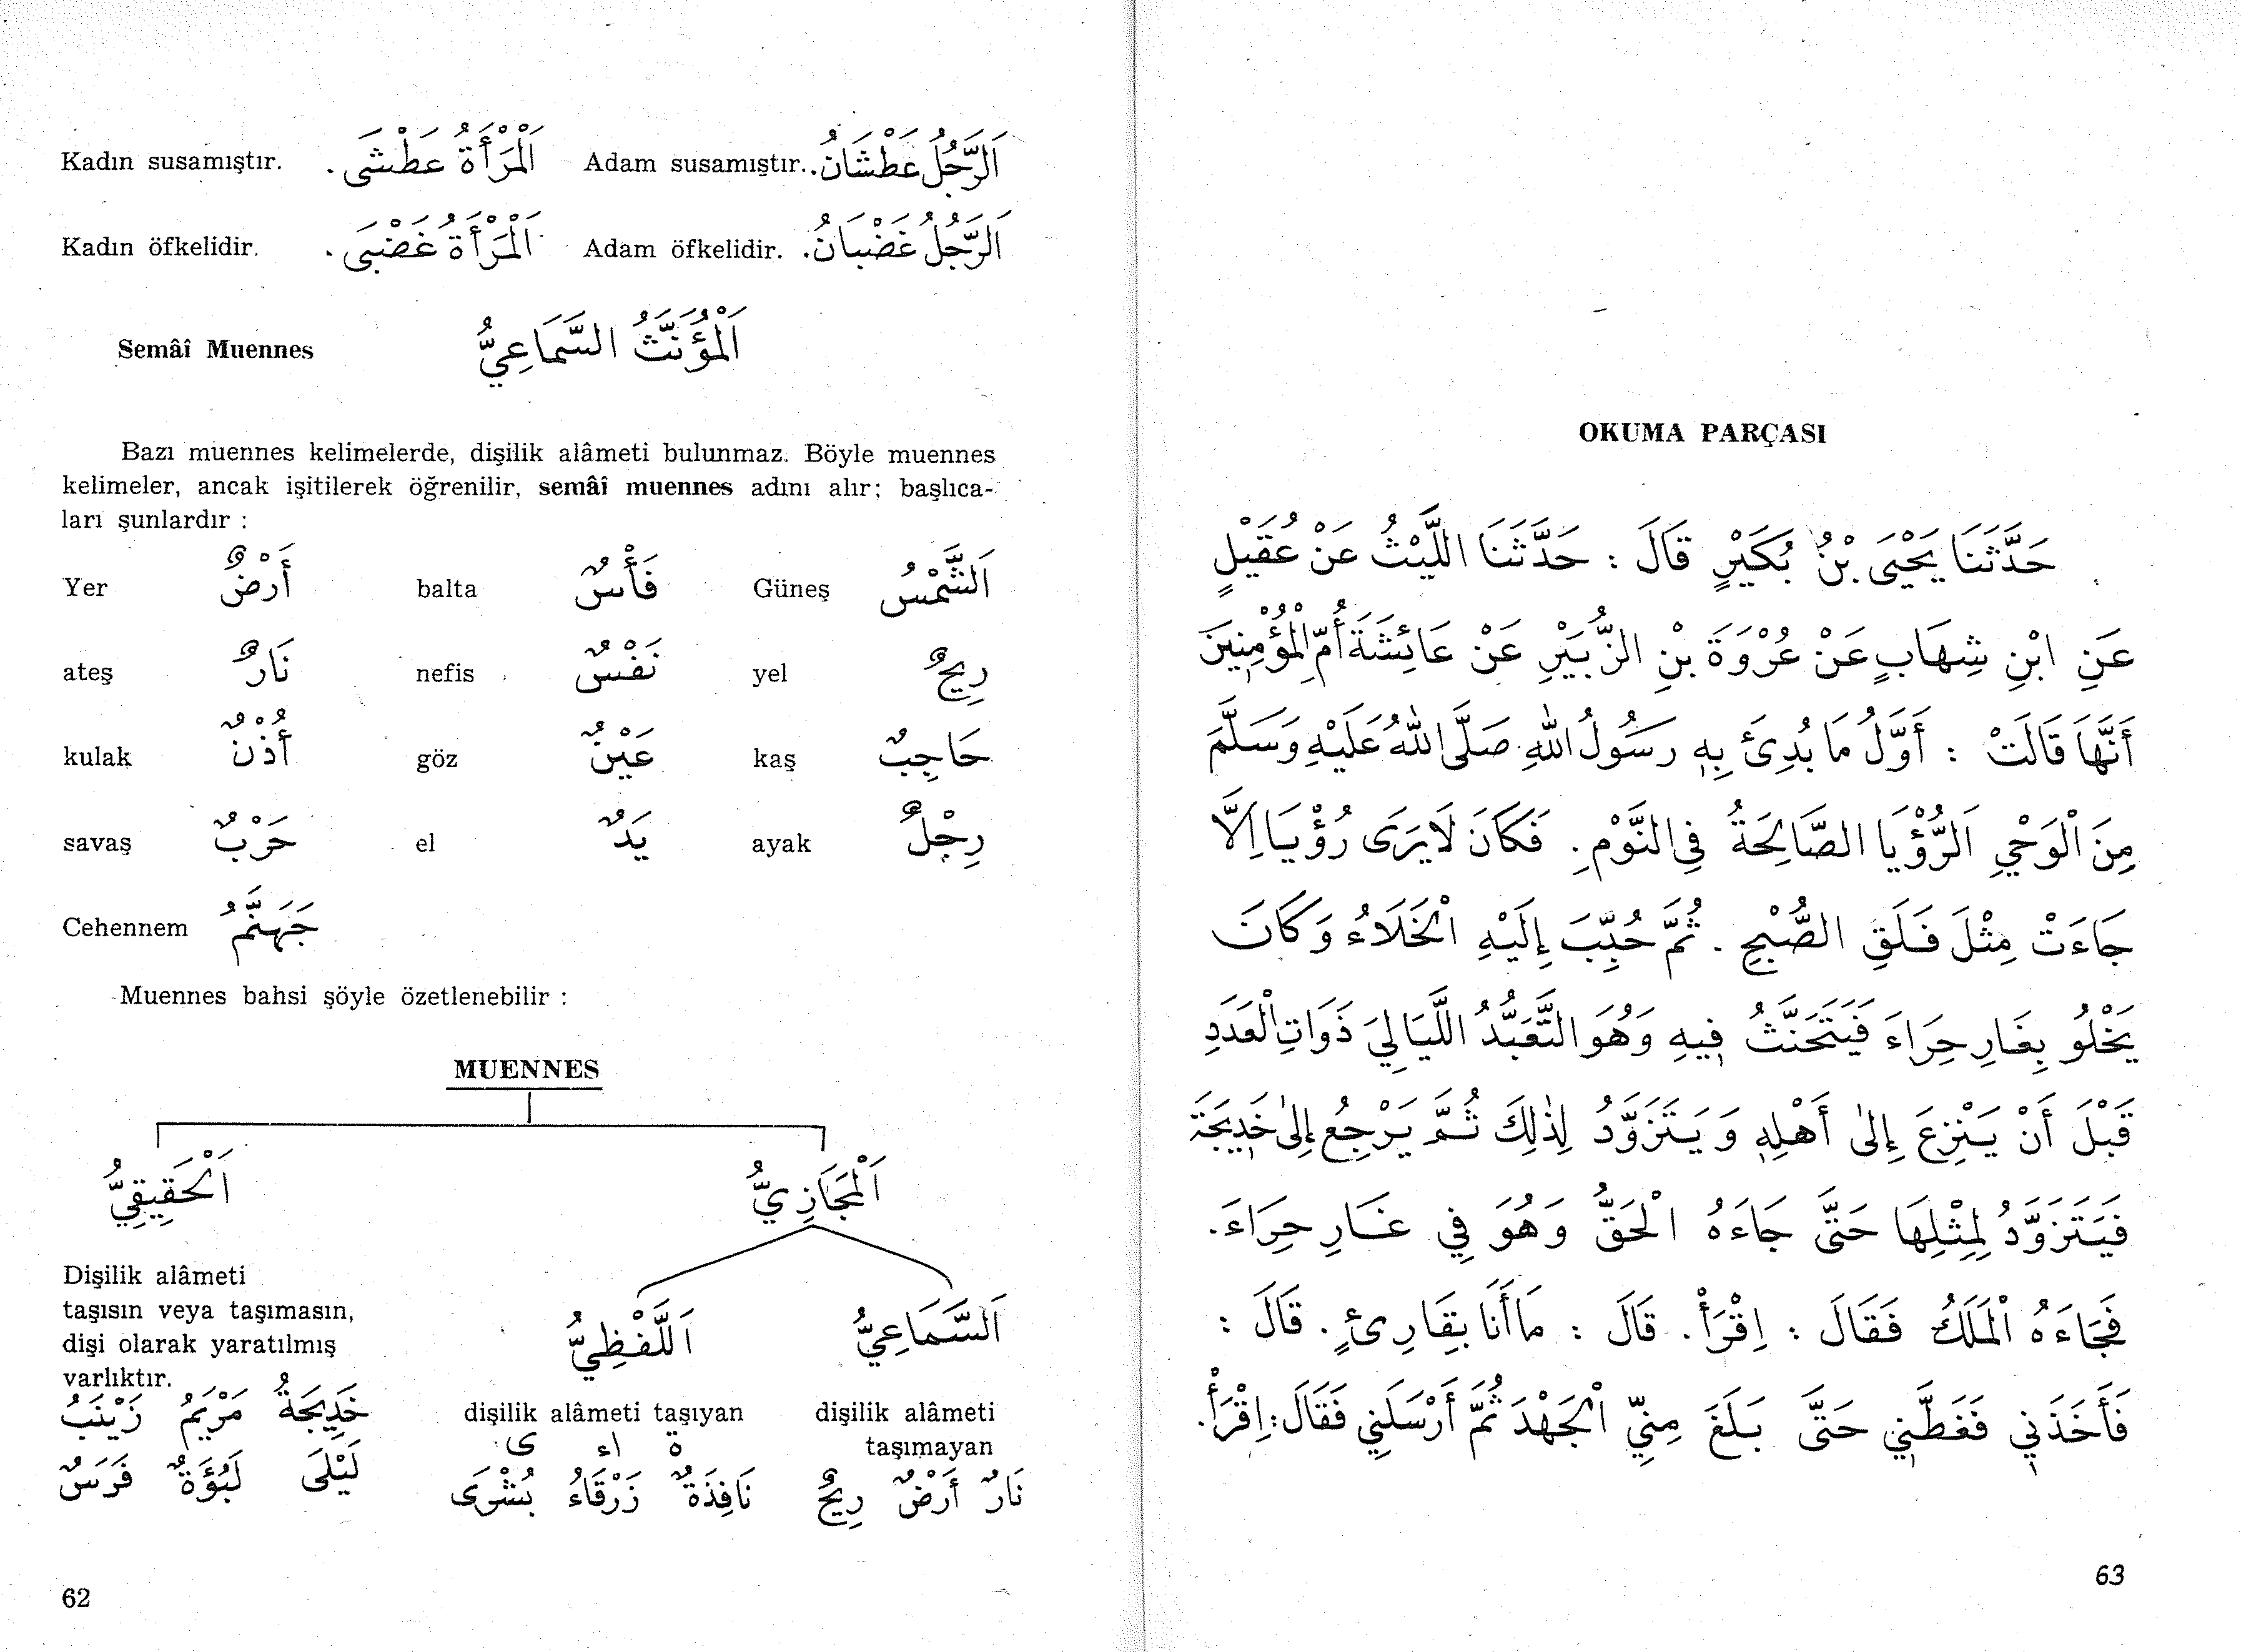 Kadın susamıştır. اَلْمَرْأَةُ عَطْشَى . Adam susamıştır. اَلرَّجُلُ عَطْشَانُ .
Kadın öfkelidir. اَلْمَرْأَةُ غَضْبَى . Adam öfkelidir. اَلرَّجُلُ غَضْبَانُ .
Semâî Muennes اَلْمُؤَنَّثُ السَّمَاعِيُّ
Bazı muennes kelimelerde, dişilik alâmeti bulunmaz. Böyle muennes
kelimeler, ancak işitilerek öğrenilir, semâî muennes adını alır; başlıca-
ları şunlardır :
Yer أَرْضٌ balta فَأْسٌ Güneş اَلشَّمْسُ
ateş نَارٌ nefis نَفْسٌ yel رِيحٌ
kulak أُذْنٌ göz عَيْنٌ kaş حَاجِبٌ
savaş حَرْبٌ el يَدٌ ayak رِجْلٌ
Cehennem جَهَنَّمُ
Muennes bahsi şöyle özetlenebilir :
MUENNES
اَلْحَقِيقِيُّ اَلْمَجَازِيُّ
Dişilik alâmeti
taşısın veya taşımasın,
dişi olarak yaratılmış
varlıktır.
خَدِيجَةُ مَرْيَمُ زَيْنَبُ
لَيْلَى لَبُؤَةٌ فَرَسٌ
اَللَّفْظِيُّ اَلسَّمَاعِيُّ
dişilik alâmeti taşıyan
ة اء ى
نَافِذَةٌ زَرْقَاءُ بُشْرَى
dişilik alâmeti
taşımayan
نَارٌ أَرْضٌ رِيحٌ
62
OKUMA PARÇASI
حَدَّثَنَا يَحْيَى بْنُ بُكَيْرٍ قَالَ : حَدَّثَنَا اللَّيْثُ عَنْ عُقَيْلٍ
عَنِ ابْنِ شِهَابٍ عَنْ عُرْوَةَ بْنِ الزُّبَيْرِ عَنْ عَائِشَةَ أُمِّ الْمُؤْمِنِينَ
أَنَّهَا قَالَتْ : أَوَّلُ مَا بُدِئَ بِهِ رَسُولُ اللهِ صَلَّى اللهُ عَلَيْهِ وَسَلَّمَ
مِنَ الْوَحْيِ اَلرُّؤْيَا الصَّالِحَةُ فِي النَّوْمِ . فَكَانَ لَا يَرَى رُؤْيَا إِلَّا
جَاءَتْ مِثْلَ فَلَقِ الصُّبْحِ . ثُمَّ حُبِّبَ إِلَيْهِ الْخَلَاءُ وَكَانَ
يَخْلُو بِغَارِ حِرَاءَ فَيَتَحَنَّثُ فِيهِ وَهُوَ التَّعَبُّدُ اللَّيَالِيَ ذَوَاتِ الْعَدَدِ
قَبْلَ أَنْ يَنْزِعَ إِلَى أَهْلِهِ وَيَتَزَوَّدُ لِذٰلِكَ ثُمَّ يَرْجِعُ إِلَى خَدِيجَةَ
فَيَتَزَوَّدُ لِمِثْلِهَا حَتَّى جَاءَهُ الْحَقُّ وَهُوَ فِي غَارِ حِرَاءَ .
فَجَاءَهُ الْمَلَكُ فَقَالَ : اِقْرَأْ . قَالَ : مَا أَنَا بِقَارِئٍ . قَالَ :
فَأَخَذَنِي فَغَطَّنِي حَتَّى بَلَغَ مِنِّي الْجَهْدَ ثُمَّ أَرْسَلَنِي فَقَالَ : اِقْرَأْ .
63